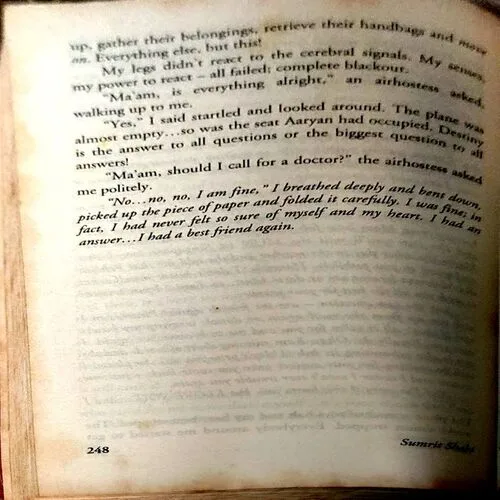 up, gather their belongings, retrieve their handbags and move
on. Everything else, but this!
My legs didn't react to the cerebral signals. My senses,
my power to react – all failed; complete blackout.
"Ma'am, is everything alright," an airhostess asked,
walking up to me.
"Yes," I said startled and looked around. The plane was
almost empty...so was the seat Aaryan had occupied. Destiny
is the answer to all questions or the biggest question to all
answers!
"Ma'am, should I call for a doctor?" the airhostess asked
me politely.
"No...no, no, I am fine," I breathed deeply and bent down,
picked up the piece of paper and folded it carefully. I was fine; in
fact, I had never felt so sure of myself and my heart. I had an
answer...I had a best friend again.
248
Sumrit